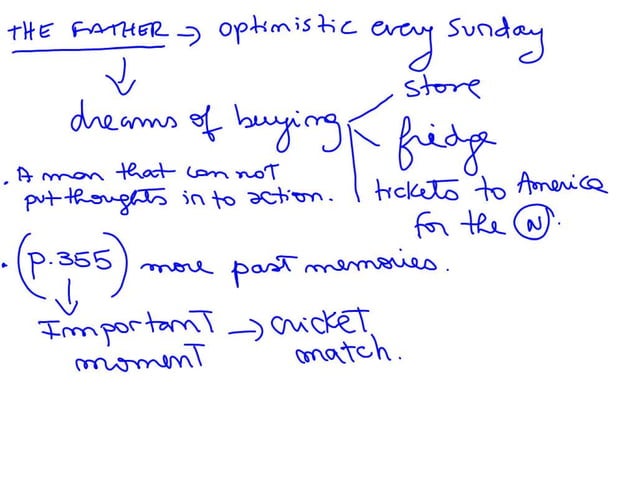 THE FATHER → optimistic every Sunday
↓
dreams of buying
store
fridge
tickets to America
for the (N).
. A man that can not
put thoughts in to action.
. (p.355) more past memories.
↓
Important → cricket
moment match.